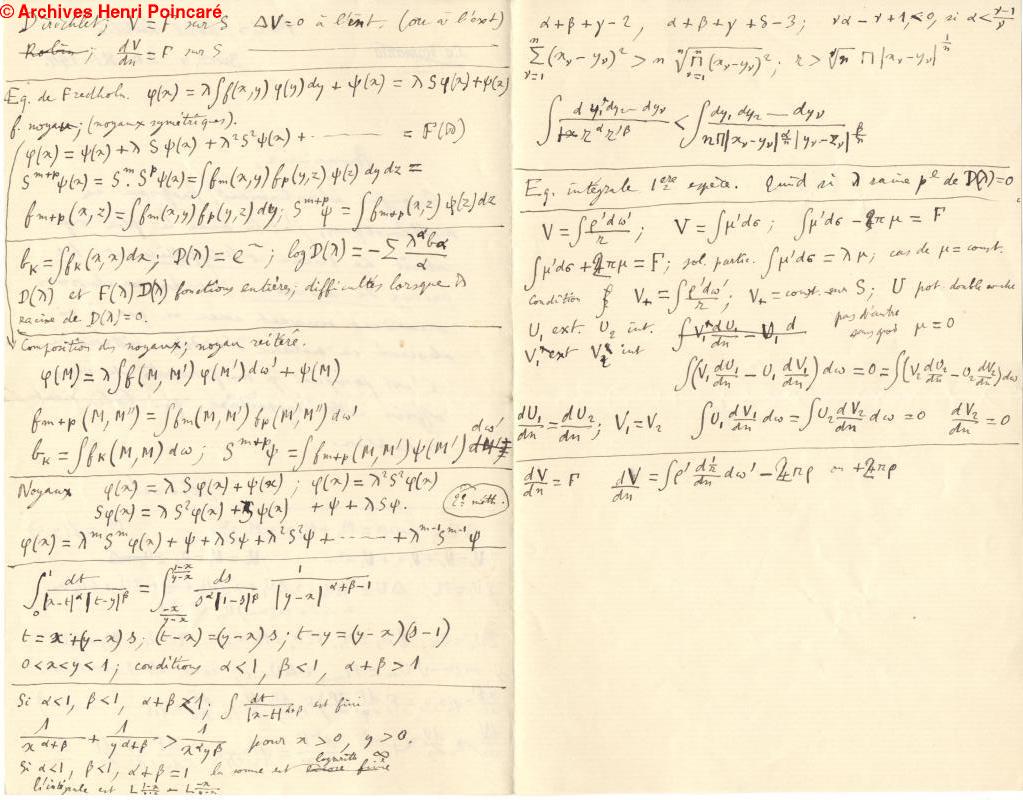 © Archives Henri Poincaré
Dirichlet; V = F sur S ΔV=0 à l'int. (ou à l'ext)
Robin; dV/dn = F sur S
Eq. de Fredholm. φ(x) = λ∫f(x,y) φ(y)dy + ψ(x) = λ S φ(x)+ψ(x)
f. noyau; (noyaux symétriques).
φ(x) = ψ(x) + λ S ψ(x) + λ²S²ψ(x) + ------ = F(λ)
S^{m+p}ψ(x) = S^m. S^pψ(x) = ∫f_m(x,y) f_p(y,z) ψ(z) dy dz =
f_{m+p}(x,z) = ∫f_m(x,y) f_p(y,z) dy; S^{m+p}ψ = ∫f_{m+p}(x,z) ψ(z)dz
b_K = ∫f_K(x,x)dx; D(λ) = e^~; log D(λ) = −Σ λ^α b_α/α
D(λ) et F(λ) D(λ) fonctions entières; difficultés lorsque λ
racine de D(λ)=0.
Composition des noyaux; noyau réitéré.
φ(M) = λ∫f(M,M') φ(M')dω' + ψ(M)
f_{m+p}(M,M'') = ∫f_m(M,M') f_p(M',M'') dω'
b_K = ∫f_K(M,M) dω; S^{m+p}ψ = ∫f_{m+p}(M,M')ψ(M') dω'
Noyaux φ(x) = λ Sφ(x)+ψ(x); φ(x) = λ²S²φ(x)
Sφ(x) = λ S²φ(x) + Sψ(x) + ψ + λSψ. 2e méth.
φ(x) = λ^m S^m φ(x) + ψ + λSψ + λ²S²ψ + ------ + λ^{m−1} S^{m−1} ψ
∫_0^1 dt/(|x−t|^α |t−y|^β) = ∫_{−x/(y−x)}^{(1−x)/(y−x)} ds/(s^α |1−s|^β) 1/|y−x|^{α+β−1}
t = x+(y−x)s; (t−x)=(y−x)s; t−y=(y−x)(s−1)
0<x<y<1; conditions α<1, β<1, α+β>1
Si α<1, β<1, α+β<1; ∫ dt/|x−t|^{α+β} est fini
1/x^{α+β} + 1/y^{α+β} > 1/(x^α y^β) pour x>0, y>0.
Si α<1, β<1, α+β=1 la somme est logarith ∞
l'intégrale est
α+β+γ−2, α+β+γ+δ−3; να−ν+1<0, si α<(ν−1)/ν
Σ_{ν=1}^n (x_ν−y_ν)² > n ⁿ√Π_{ν=1}^n (x_ν−y_ν)²; r > √n Π|x_ν−y_ν|^{1/n}
∫ dy_1 dy_2 — dy_ν/(r^α r'^β) < ∫ dy_1 dy_2 — dy_ν/(nΠ|x_ν−y_ν|^{α/n} |y_ν−z_ν|^{β/n})
Eq. intégrale 1ère espèce. Quid si λ racine p^e de D(λ)=0
V = ∫ρ'dω'/r; V = ∫μ'dσ; ∫μ'dσ − 2πμ = F
∫μ'dσ + 2πμ = F; sol. partic. ∫μ'dσ = λμ; cas de μ = const.
Condition V_+ = ∫ρ'dω'/r; V_+ = const. sur S; U pot. double couche
U_1 ext. U_2 int. pas d'autre
V_1 ext V_2 int sous quoi μ = 0
∫(V_1 dU_1/dn − U_1 dV_1/dn) dω = 0 = ∫(V_2 dU_2/dn − U_2 dV_2/dn) dω
dU_1/dn = dU_2/dn; V_1 = V_2 ∫U_1 dV_1/dn dω = ∫U_2 dV_2/dn dω = 0 dV_2/dn = 0
dV/dn = F dV/dn = ∫ρ' d(1/r)/dn dω' − 2πρ ou +2πρ